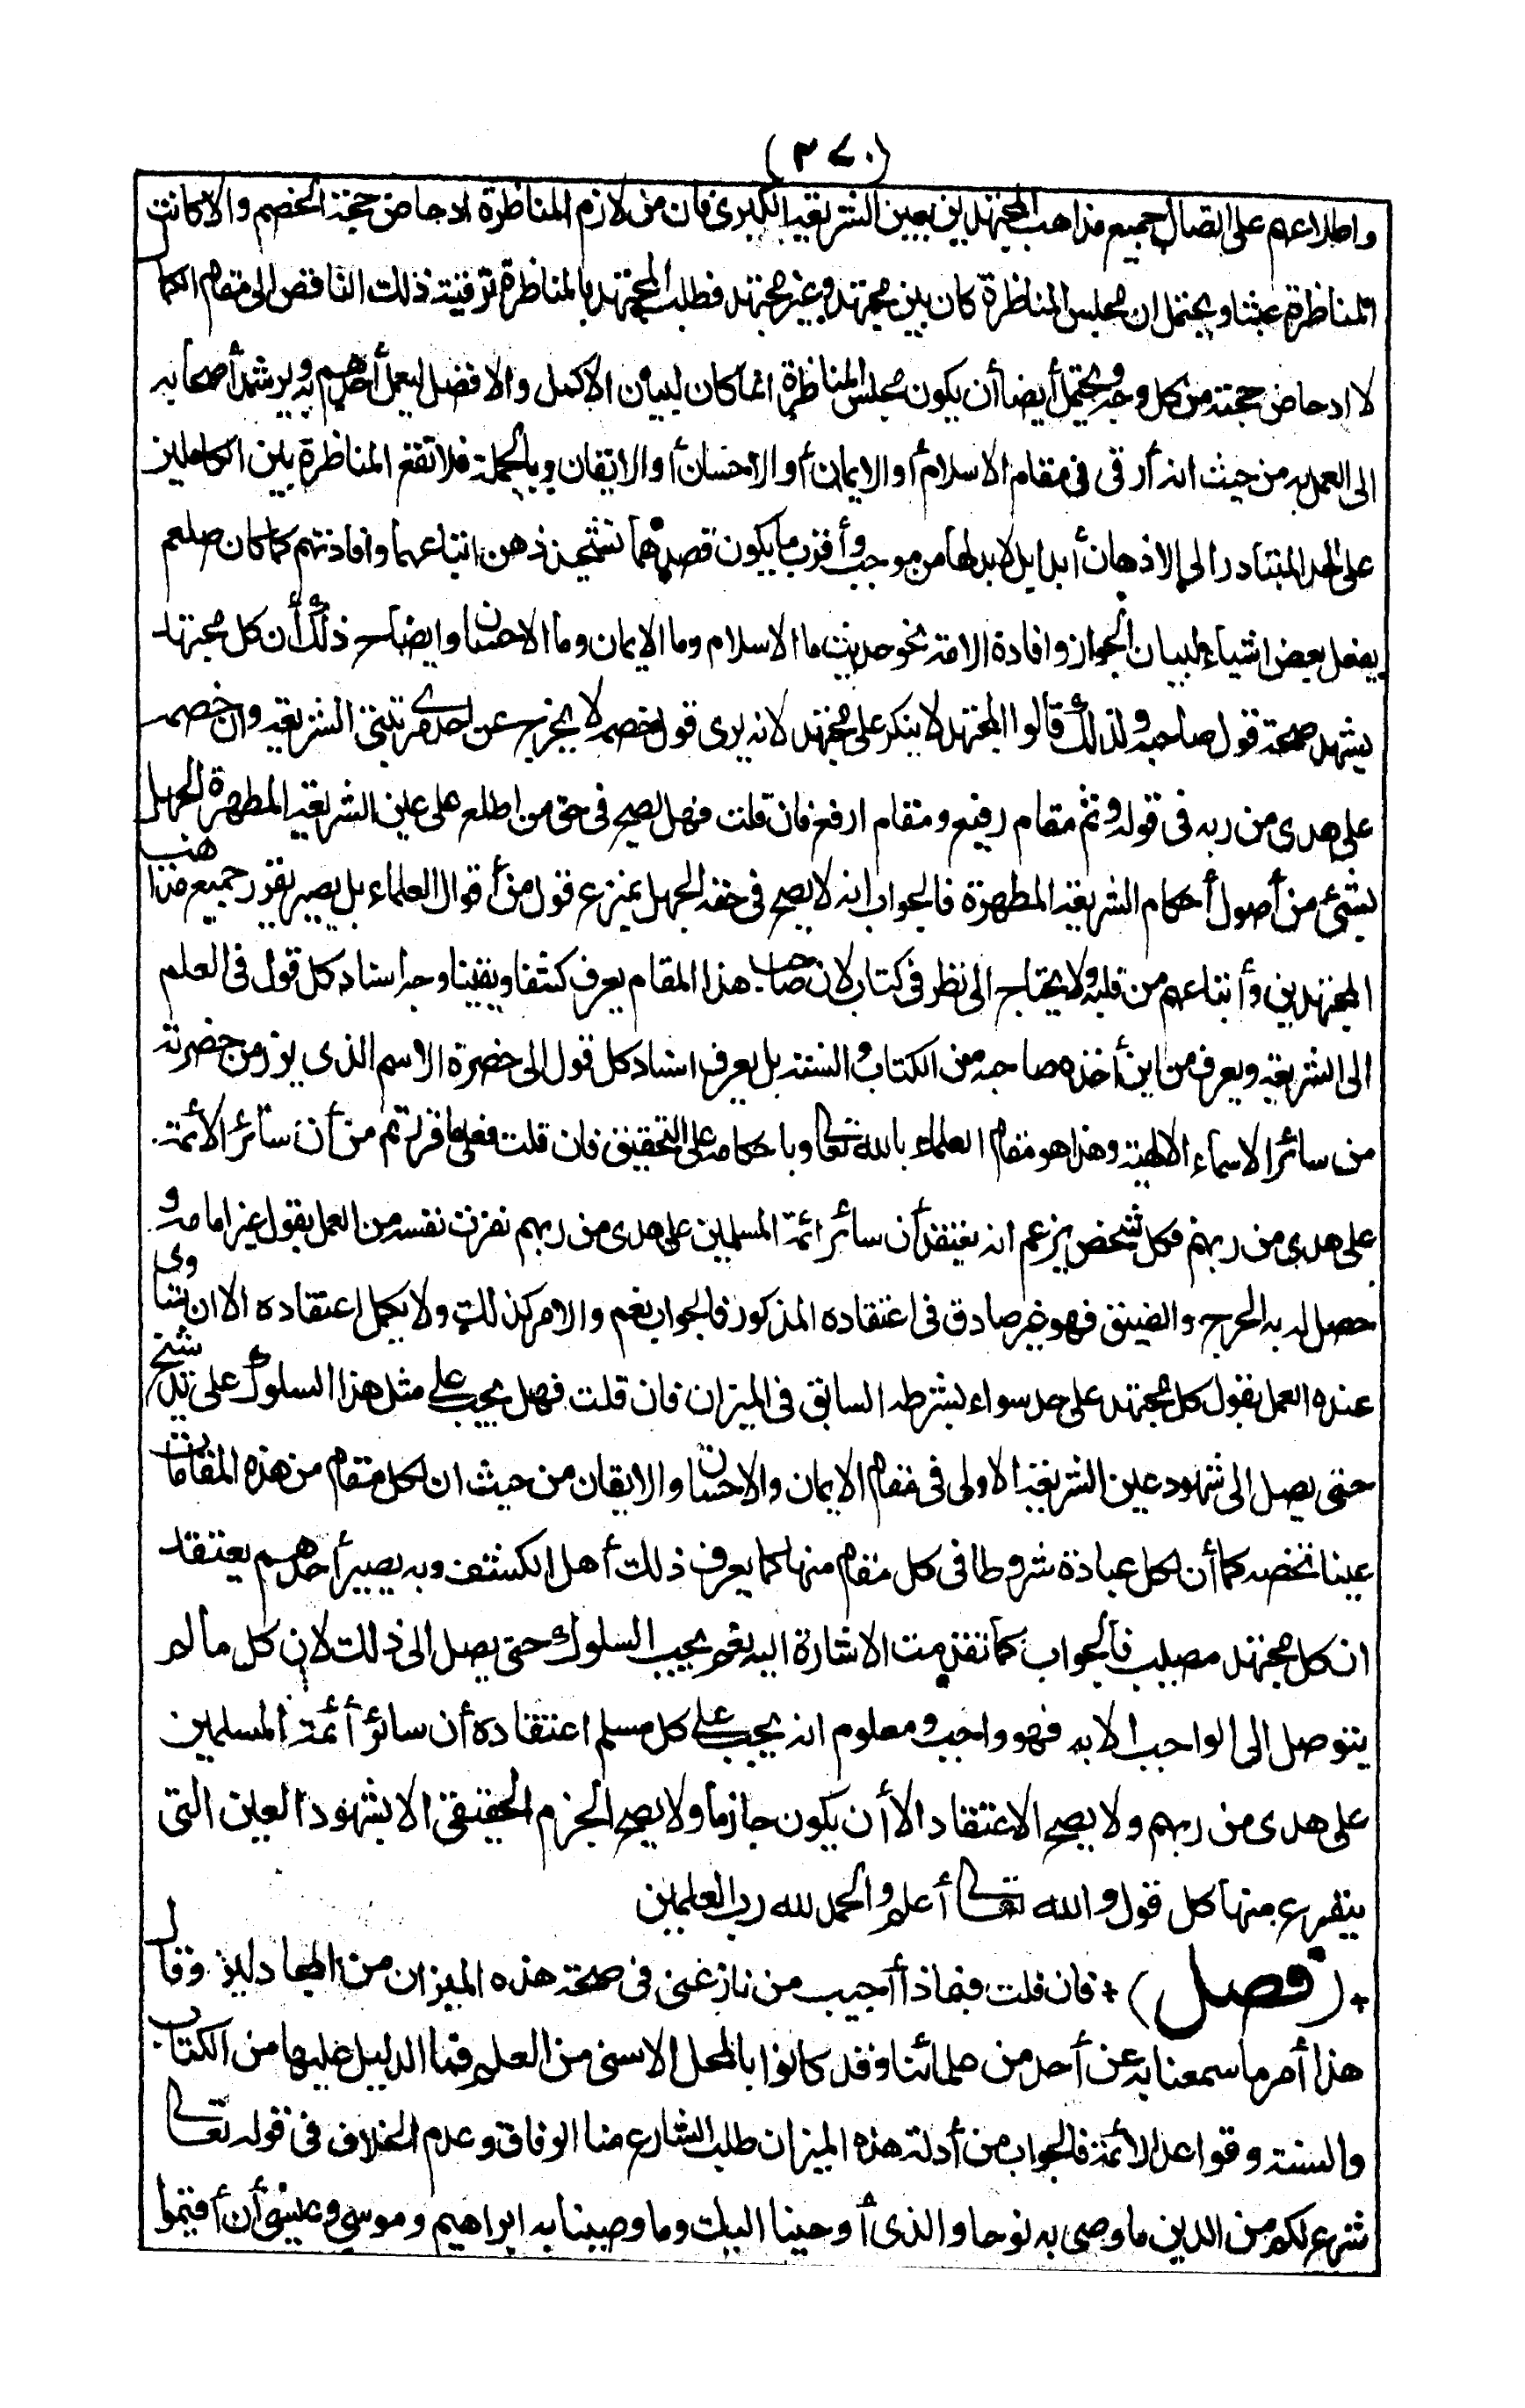 (٣٧٠)
واطلاعهم على اتصال جميع مذاهب المجتهدين بعين الشريعة الكبرى فان من لازم المناظرة ادحاض حجة الخصم والا كانت
المناظرة عبثا ويحتمل ان مجلس المناظرة كان بين مجتهد وغير مجتهد فطلب المجتهد بالمناظرة ترقية ذلك الناقص الى مقام الكمال
لا ادحاض حجته من كل وجه ويحتمل أيضا أن يكون مجلس المناظرة انما كان لبيان الاكمل والافضل ليعمل أحدهم به ويرشد أصحابه
الى العمل به من حيث انه أرقى فى مقام الاسلام أو الايمان أو الاحسان أو الايقان وبالجملة فلا تقع المناظرة بين الكاملين
على الحد المتبادر الى الاذهان أبدا بل لابد لها من موجب وأقرب ما يكون قصدهما تشحيذ ذهن اتباعهما وافادتهم كما كان صلعم
يفعل بعض اشياء لبيان الجواز وافادة الامة نحو حديث ما الاسلام وما الايمان وما الاحسان وايضاح ذلك أن كل مجتهد
يشهد صحة قول صاحبه ولذلك قالوا المجتهد لا ينكر على مجتهد لانه يرى قول خصمه لا يخرج عن احدى مرتبتى الشريعة وان خصمه
على هدى من ربه فى قوله وثم مقام رفيع ومقام ارفع فان قلت فهل يصح فى حق من اطلع على عين الشريعة المطهرة الجهل
بشئ من أصول أحكام الشريعة المطهرة فالجواب انه لا يصح فى حقه الجهل بمنزع قول من أقوال العلماء بل يصير يقرر جميع مذاهب
المجتهدين وأتباعهم من قلبه ولا يحتاج الى نظر فى كتاب لان صاحب هذا المقام يعرف كشفا ويقينا وجه اسناد كل قول فى العلم
الى الشريعة ويعرف من اين أخذه صاحبه من الكتاب والسنة بل يعرف اسناد كل قول الى حضرة الاسم الذى برز من حضرته
من سائر الاسماء الالهية وهذا هو مقام العلماء بالله تعالى وباحكامه على التحقيق فان قلت فعلى ما قررتم من أن سائر الأئمة
على هدى من ربهم فكل شخص يزعم انه يعتقد أن سائر ائمة المسلمين على هدى من ربهم نفرت نفسه من العمل بقول غير امامه و
حصل له به الحرج والضيق فهو غير صادق فى اعتقاده المذكور فالجواب نعم والامر كذلك ولا يكمل اعتقاده الا ان تساوى
عنده العمل بقول كل مجتهد على حد سواء بشرطه السابق فى الميزان فان قلت فهل يجب على مثل هذا السلوك على يد شيخ
حتى يصل الى شهود عين الشريعة الاولى فى مقام الايمان والاحسان والايقان من حيث ان لكل مقام من هذه المقامات
عينا تخصه كما أن لكل عبادة شروطا فى كل مقام منها كما يعرف ذلك أهل الكشف وبه يصير أحدهم يعتقد
ان كل مجتهد مصيب فالجواب كما تقدمت الاشارة اليه نعم يجب السلوك حتى يصل الى ذلك لان كل ما لم
يتوصل الى الواجب الا به فهو واجب ومعلوم انه يجب على كل مسلم اعتقاده أن سائر أئمة المسلمين
على هدى من ربهم ولا يصح الاعتقاد الا أن يكون جازما ولا يصح الجزم الحقيقى الا بشهود العين التى
يتفرع منها كل قول والله تعالى أعلم والحمد لله رب العلمين
+ (فصل) + فان قلت فبماذا أجيب من نازعنى فى صحة هذه الميزان من المجادلين وقال
هذا أمر ما سمعنا به عن أحد من علمائنا وقد كانوا بالمحل الاسنى من العلم فما الدليل عليها من الكتاب
والسنة وقواعد الأئمة فالجواب من أدلة هذه الميزان طلب الشارع منا الوفاق وعدم الخلاف فى قوله تعالى
شرع لكم من الدين ما وصى به نوحا والذى أوحينا اليك وما وصينا به ابراهيم وموسى وعيسى أن أقيموا